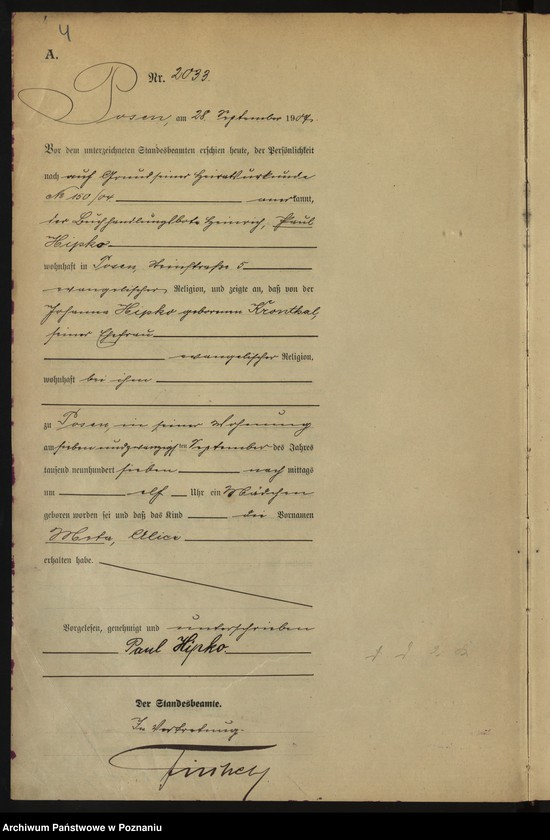 4
A.
Nr. 2033.
Posen, am 28. September 1907.
Vor dem unterzeichneten Standesbeamten erschien heute, der Persönlichkeit
nach auf Grund seiner Heiratsurkunde
No 150/04 anerkannt,
der Buchhandlungsbote Heinrich, Paul
Hipko
wohnhaft in Posen, 5
evangelischer Religion, und zeigte an, daß von der
Johanna Hipko geborenen Kronthal,
seiner Ehefrau
evangelischer Religion,
wohnhaft bei ihm
zu Posen, in seiner Wohnung
am sieben und zwanzigsten September des Jahres
tausend neunhundert sieben nach mittags
um elf Uhr ein Mädchen
geboren worden sei und daß das Kind die Vornamen
Meta, Alice
erhalten habe.
Vorgelesen, genehmigt und unterschrieben
Paul Hipko
Der Standesbeamte.
In Vertretung.
Archiwum Państwowe w Poznaniu